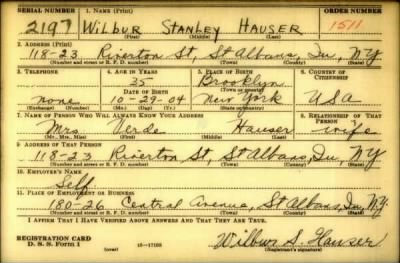 SERIAL NUMBER 1. NAME (Print) ORDER NUMBER
2197 WILBUR STANLEY HAUSER 1511
(First) (Middle) (Last)
2. ADDRESS (Print)
118-23 Riverton St, St Albans, Qu, NY
(Number and street or R. F. D. number) (Town) (County) (State)
3. TELEPHONE 4. AGE IN YEARS 5. PLACE OF BIRTH 6. COUNTRY OF CITIZENSHIP
35 Brooklyn
DATE OF BIRTH (Town or county)
none 10-29-04 New York USA
(Exchange) (No.) (Mo.) (Day) (Yr.) (State or country)
7. NAME OF PERSON WHO WILL ALWAYS KNOW YOUR ADDRESS 8. RELATIONSHIP OF THAT PERSON
Mrs Verde Hauser wife
(Mr., Mrs., Miss) (First) (Middle) (Last)
9. ADDRESS OF THAT PERSON
118-23 Riverton St, St Albans, Qu, NY
(Number and street or R. F. D. number) (Town) (County) (State)
10. EMPLOYER'S NAME
Self
11. PLACE OF EMPLOYMENT OR BUSINESS
180-26 Central Avenue, St Albans, Qu, N.Y.
(Number and street or R. F. D. number) (Town) (County) (State)
I AFFIRM THAT I HAVE VERIFIED ABOVE ANSWERS AND THAT THEY ARE TRUE.
REGISTRATION CARD
D. S. S. FORM 1 16-17105 Wilbur S. Hauser
(Registrant's signature)